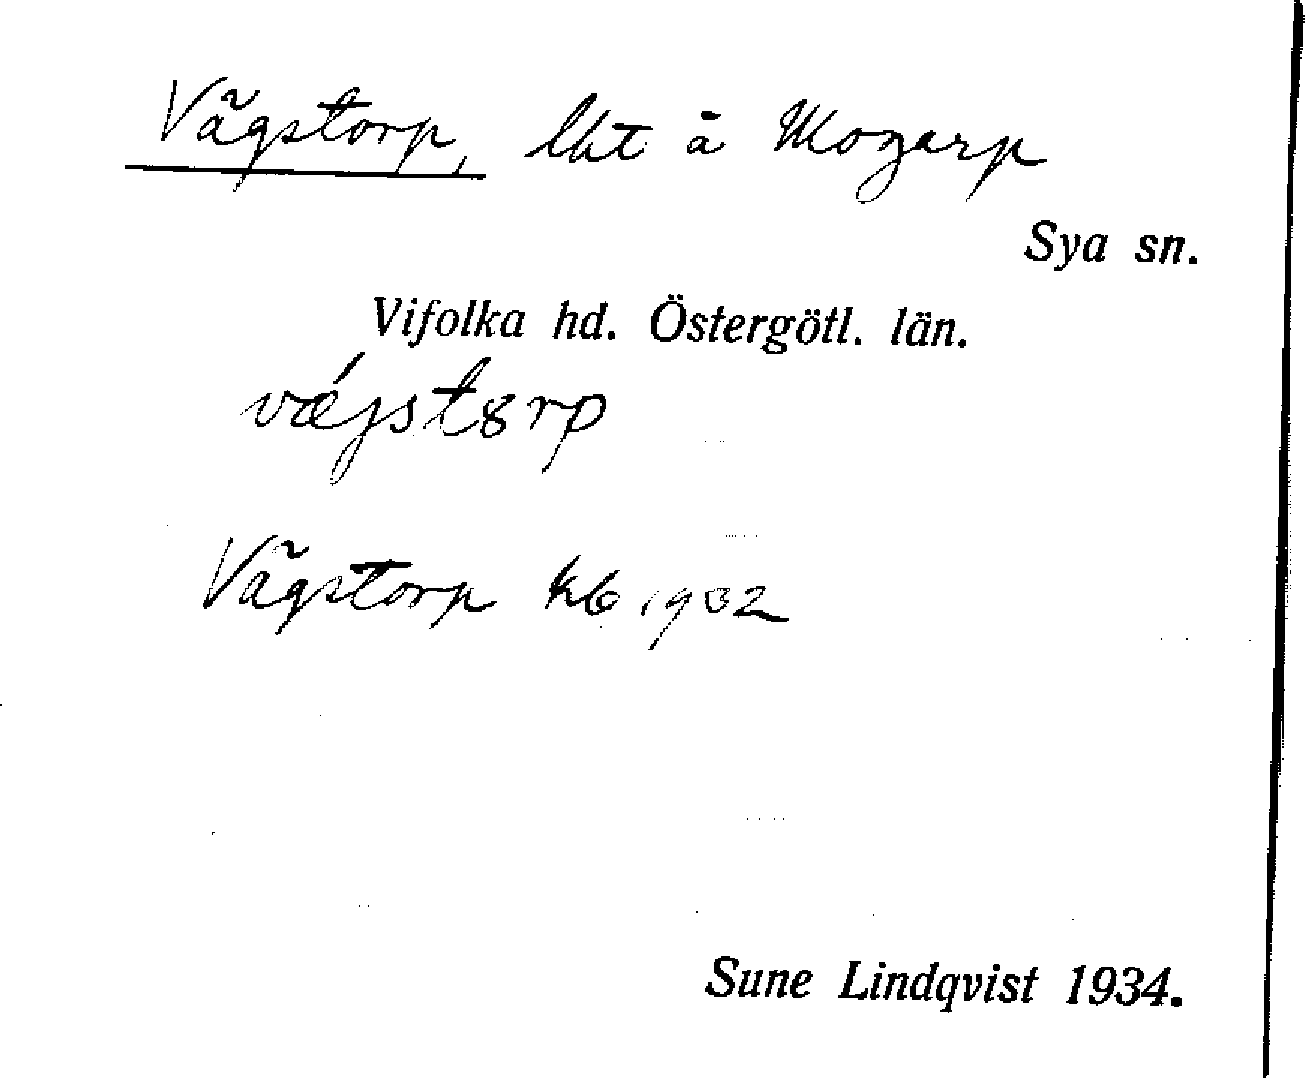 Vägstorp, lht å Mogarp
Sya sn.
Vifolka hd. Östergötl. län.
vǽjstɵrp
Vägstorp kb 1932
Sune Lindqvist 1934.